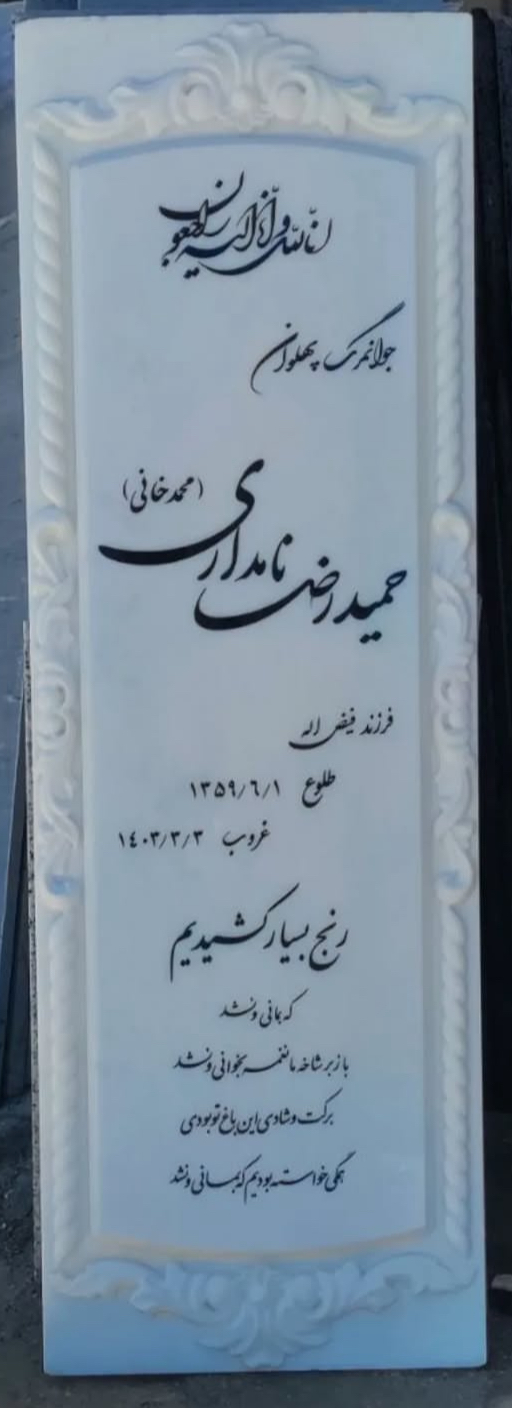 انا لله و انا الیه راجعون
جوانمرگ پهلوان
(محمدخانی)
حمیدرضا نامداری
فرزند فیض اله
طلوع ۱۳۵۹/٦/۱
غروب ۱٤۰۳/۳/۳
رنج بسیار کشیدیم
که بمانی و نشد
باز بر شاخه ما نغمه بخوانی و نشد
برکت و شادی این باغ تو بودی
همگی خواسته بودیم که بمانی و نشد